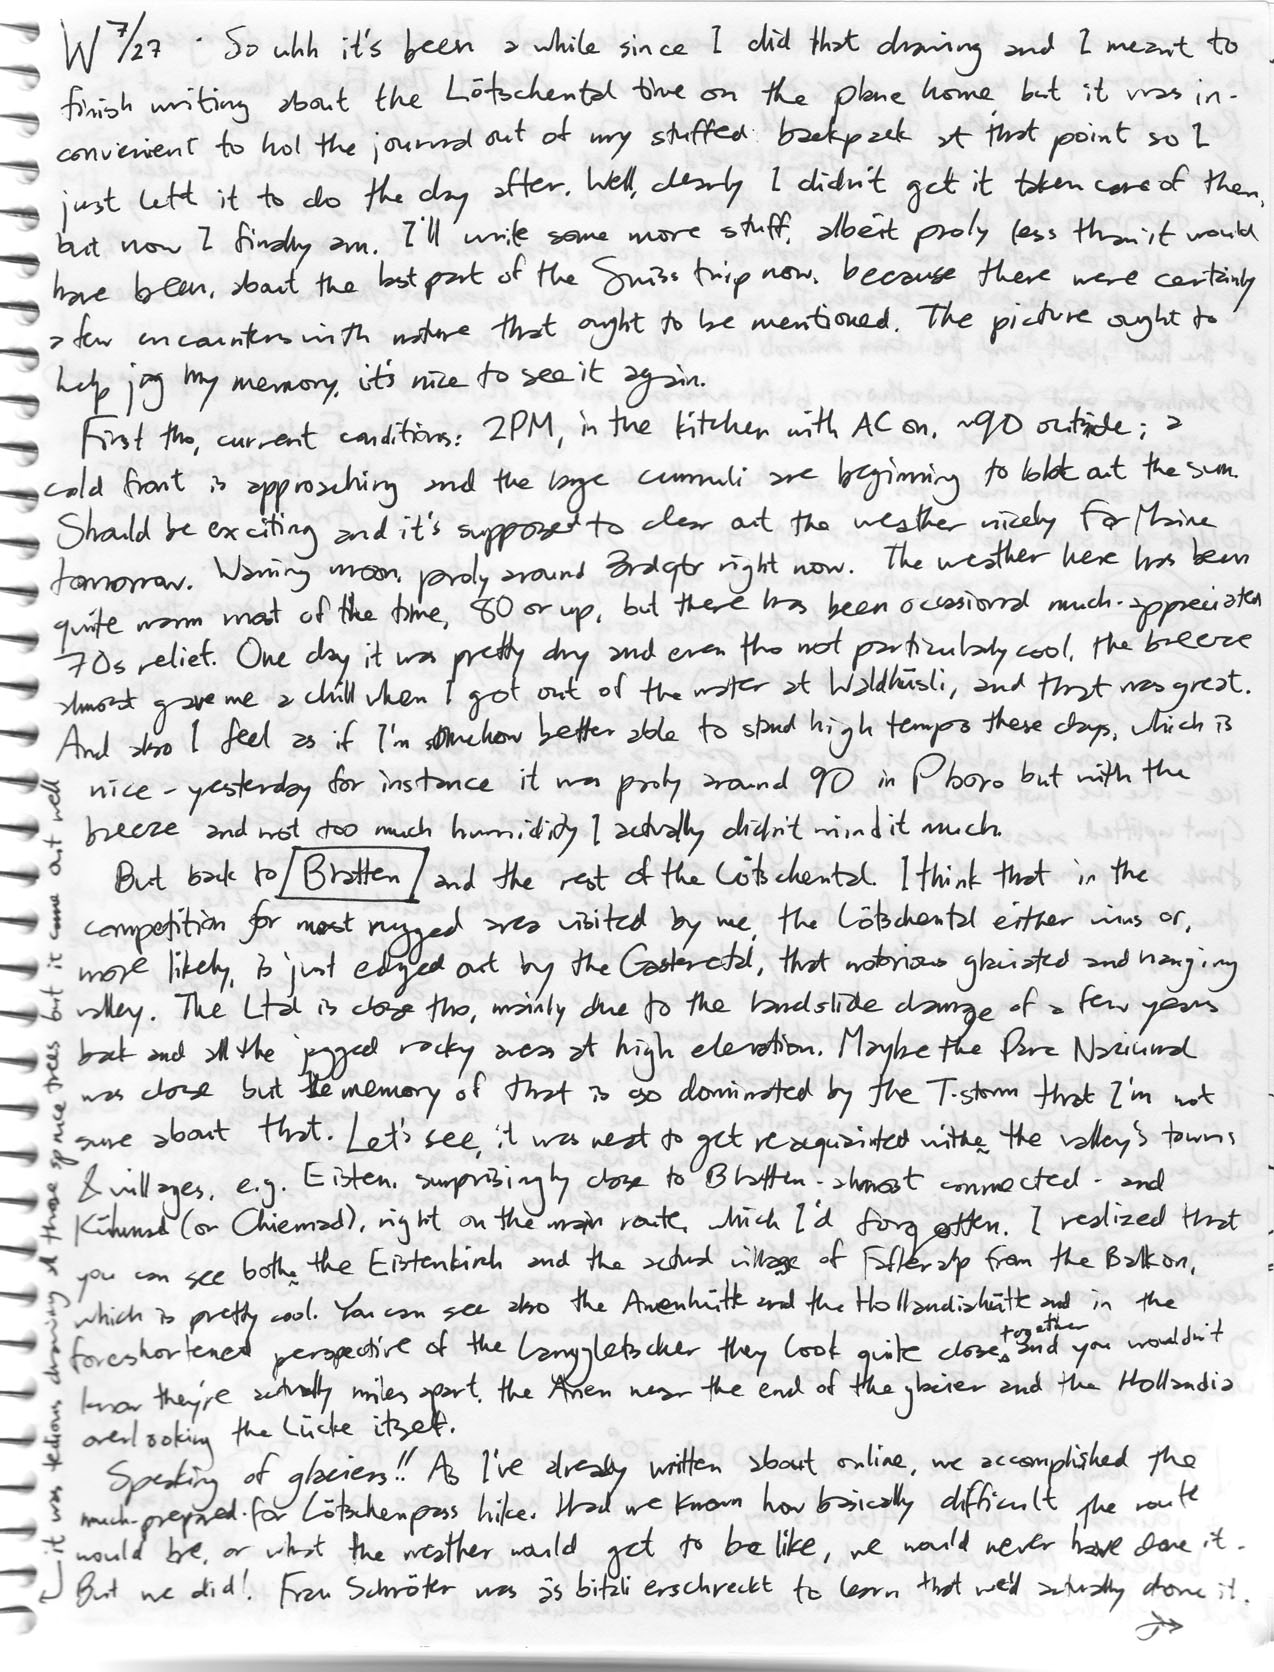 W 7/27 · So uhh it's been a while since I did that drawing and I meant to
finish writing about the Lötschental time on the plane home, but it was in-
convenient to hol the journal out of my stuffed backpack at that point so I
just left it to do the day after. Well, clearly I didn't get it taken care of then,
but now I finally am. I'll write some more stuff, albeit probly less than it would
have been, about the last part of the Swiss trip now, because there were certainly
a few encounters with nature that ought to be mentioned. The picture ought to
help jog my memory, it's nice to see it again.
First tho, current conditions: 2PM, in the kitchen with AC on, ~90 outside; a
cold front is approaching and the large cumuli are beginning to blot out the sun.
Should be exciting and it's supposed to clear out the weather nicely for Maine
tomorrow. Waning moon, probly around 3rd qtr right now. The weather here has been
quite warm most of the time, 80 or up, but there has been occasional much-appreciated
70s relief. One day it was pretty dry and even tho not particularly cool, the breeze
almost gave me a chill when I got out of the water at Waldhüsli, and that was great.
And also I feel as if I'm somehow better able to stand high temps these days, which is
nice - yesterday for instance it was probly around 90 in Pboro but with the
breeze and not too much humidity I actually didn't mind it much.
But back to Blatten and the rest of the Lötschental. I think that in the
competition for most rugged area visited by me, the Lötschental either wins or,
more likely, is just edged out by the Gasteretal, that notorious glaciated and hanging
valley. The Ltal is close tho, mainly due to the landslide damage of a few years
back and all the jagged rocky areas at high elevation. Maybe the Parc Naziunal
was close but the memory of that is so dominated by the T-storm that I'm not
sure about that. Let's see, it was neat to get reacquainted withe the valley's towns
& villages, e.g. Eisten, surprisingly close to Blatten - almost connected - and
Kühmad (or Chiemad), right on the main route, which I'd forgotten. I realized that
you can see bothe the Eistenkirch and the actual village of Fafleralp from the Balkon,
which is pretty cool. You can see also the Anenhütte and the Hollandiahütte and in the
foreshortened perspective of the Langgletscher they look quite close together and you wouldn't
know they're actually miles apart, the Anen near the end of the glacier and the Hollandia
overlooking the Lücke itself.
Speaking of glaciers!! As I've already written about online, we accomplished the
much-prepared-for Lötschenpass hike. Had we known how basically difficult the route
would be, or what the weather would get to be like, we would never have done it.
But we did! Frau Schröter was äs bitzli erschreckt to learn that we'd actually done it.
it was tedious drawing all those spruce trees but it came out well